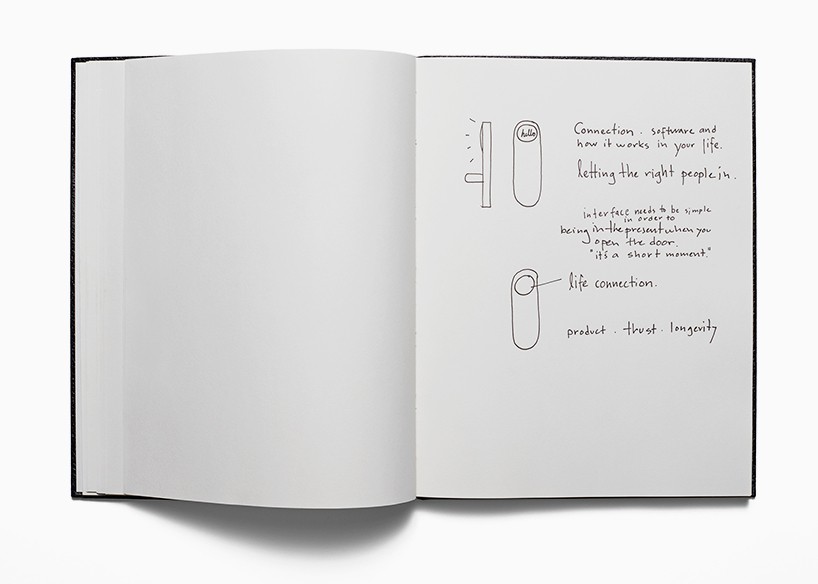 hello
Connection. software and
how it works in your life.
letting the right people in.
interface needs to be simple
in order to
being in the present when you
open the door.
"it's a short moment."
life connection.
product . trust . longevity